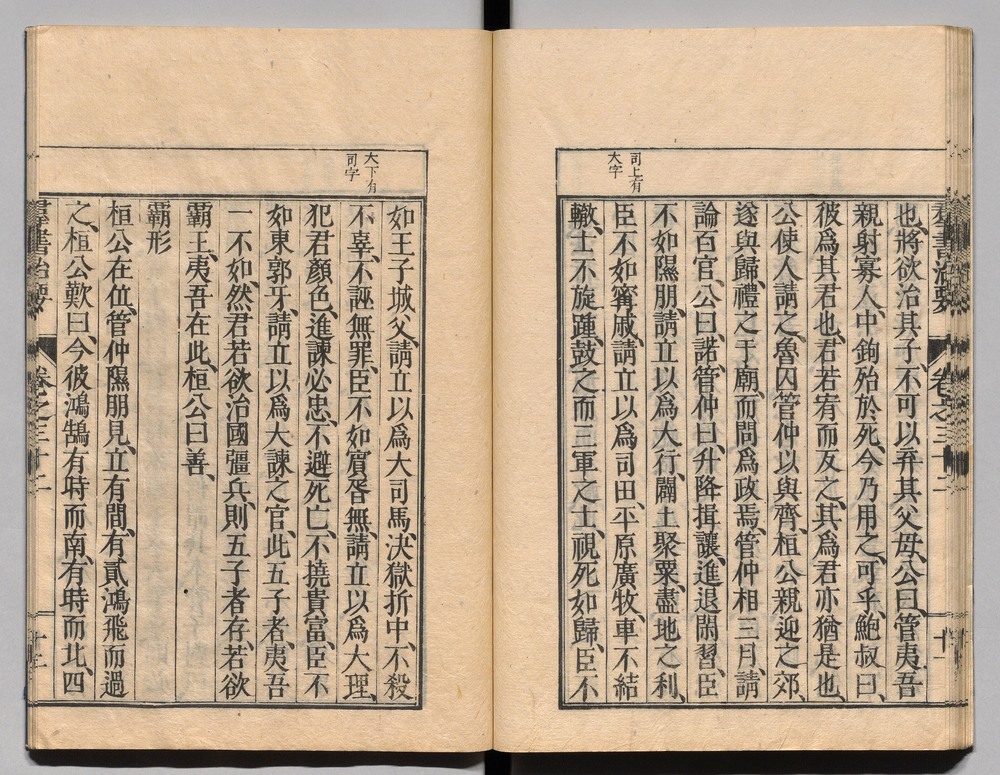 羣書治要 卷之三十二 十一
司上有
大字
也、將欲治其子、不可以弃其父母、公曰、管夷吾
親射寡人、中鉤殆於死、今乃用之、可乎、鮑叔曰、
彼爲其君也、君若宥而反之、其爲君亦猶是也、
公使人請之、魯囚管仲以與齊、桓公親迎之郊、
遂與歸、禮之于廟、而問爲政焉、管仲相三月、請
論百官、公曰、諾、管仲曰、升降揖讓、進退閑習、臣
不如隰朋、請立以爲大行、闢土聚粟、盡地之利、
臣不如甯戚、請立以爲司田、平原廣牧、車不結
轍、士不旋踵、鼓之而三軍之士、視死如歸、臣不
大下有
司字
如王子城父、請立以爲大司馬、決獄折中、不殺
不辜、不誣無罪、臣不如賓胥無、請立以爲大理、
犯君顏色、進諫必忠、不避死亡、不撓貴富、臣不
如東郭牙、請立以爲大諫之官、此五子者、夷吾
一不如、然君若欲治國彊兵、則五子者存、若欲
霸王、夷吾在此、桓公曰善、
霸形
桓公在位、管仲隰朋見、立有間、有貳鴻飛而過
之、桓公歎曰、今彼鴻鵠有時而南、有時而北、四
羣書治要 卷之三十二 十二